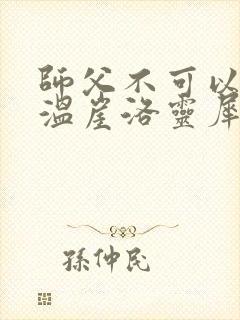 師父不可以
溫崖洛靈犀
孫仲民